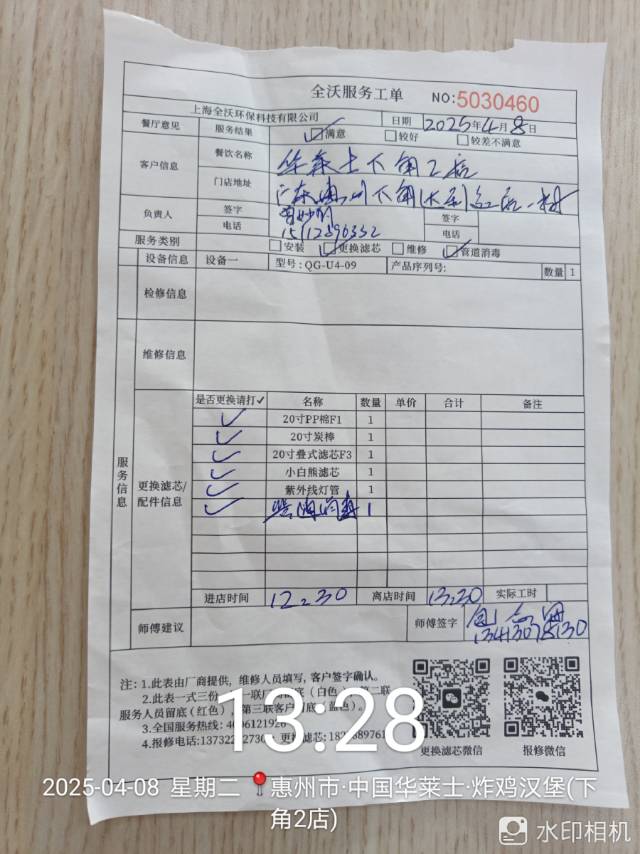 全沃服务工单 NO:5030460
上海全沃环保科技有限公司 日期 2025年4月8日
餐厅意见 服务结果 满意 较好 较差不满意
客户信息 餐饮名称 华莱士下角2店
门店地址 广东惠州下角
负责人 签字 签字
电话 电话
服务类别 安装 更换滤芯 维修 管道消毒
设备信息 设备一 型号:QG-U4-09 产品序列号: 数量 1
检修信息
维修信息
服务信息
更换滤芯/配件信息
是否更换请打✓ 名称 数量 单价 合计 备注
✓ 20寸PP棉F1 1
✓ 20寸炭棒 1
✓ 20寸叠式滤芯F3 1
✓ 小白熊滤芯 1
✓ 紫外线灯管 1
✓ 1
进店时间 12:30 离店时间 13:30 实际工时
师傅建议 师傅签字
注:1.此表由厂商提供,维修人员填写,客户签字确认。
2.此表一式三份
服务人员留底(红色)
3.全国服务热线:
4.报修电话: 更换滤芯:
更换滤芯微信 报修微信
13:28
2025-04-08 星期二 惠州市·中国华莱士·炸鸡汉堡(下
角2店)
水印相机